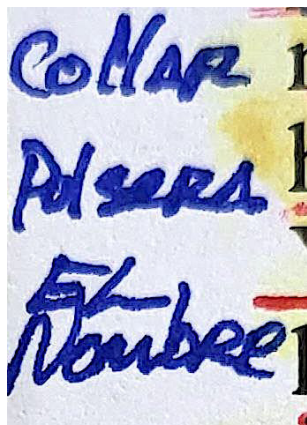 Collar
Pulsera
EL
Nombre